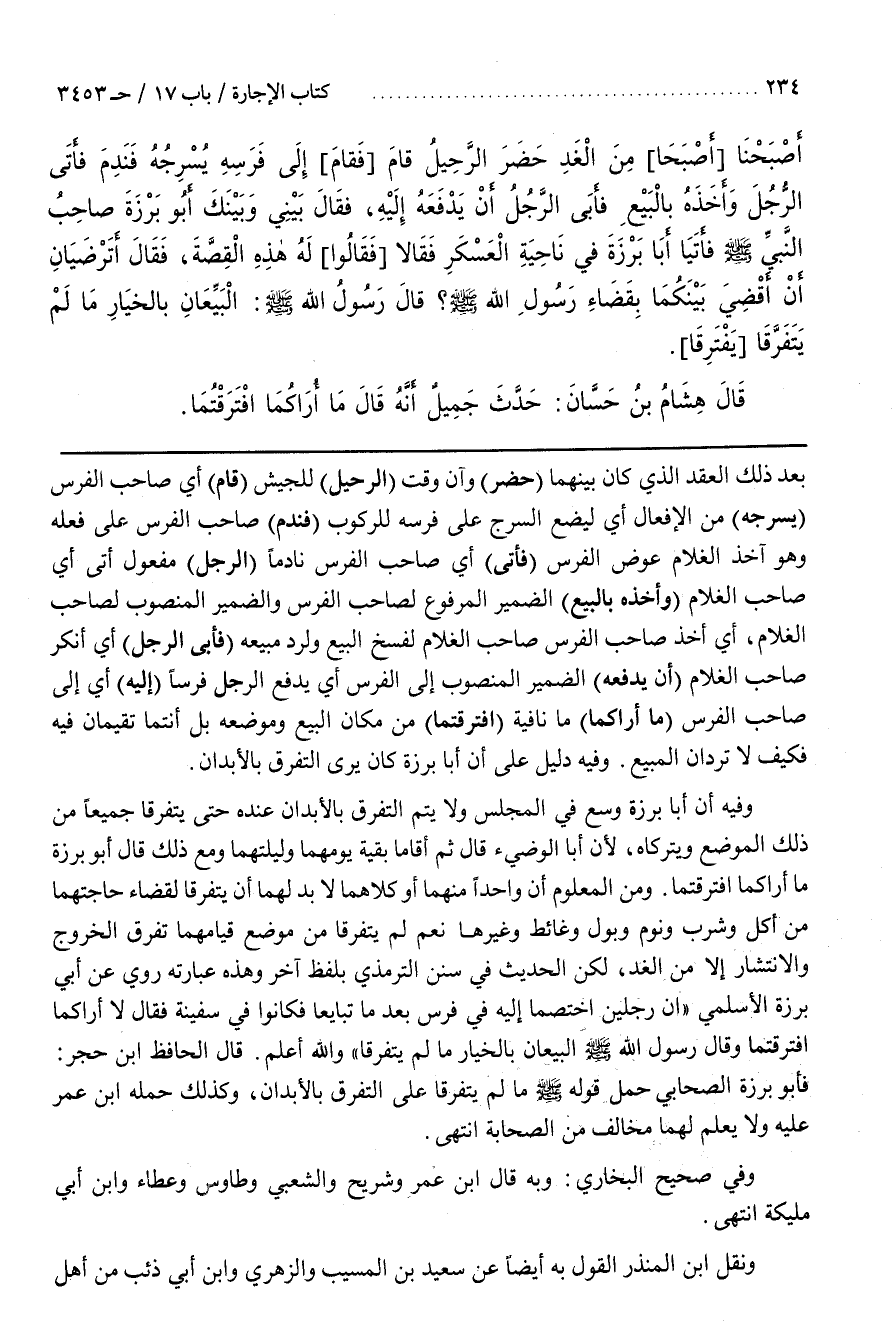 ٢٣٤ ................................................ كتاب الإجارة / باب ١٧ / حـ ٣٤٥٣
أَصْبَحْنَا [أَصْبَحَا] مِنَ الْغَدِ حَضَرَ الرَّحِيلُ قامَ [فَقامَ] إِلَى فَرَسِهِ يُسْرِجُهُ فَنَدِمَ فأَتَى
الرُّجُلَ وَأَخَذَهُ بالْبَيْعِ فأَبى الرَّجُلُ أَنْ يَدْفَعَهُ إِلَيْهِ، فقالَ بَيْنِي وَبَيْنَكَ أَبُو بَرْزَةَ صاحِبُ
النَّبيِّ ﷺ فأَتَيَا أَبَا بَرْزَةَ في نَاحِيَةِ الْعَسْكَرِ فَقالا [فَقَالُوا] لَهُ هٰذِهِ الْقِصَّةَ، فَقَالَ أَتَرْضَيَانِ
أَنْ أَقْضِيَ بَيْنَكُمَا بِقَضَاءِ رَسُولِ الله ﷺ؟ قالَ رَسُولُ الله ﷺ: الْبَيِّعَانِ بالخيَارِ مَا لَمْ
يَتَفَرَّقَا [يَفْتَرِقَا].
قَالَ هِشَامُ بنُ حَسَّانَ: حَدَّثَ جَمِيلٌ أَنَّهُ قَالَ مَا أُرَاكُمَا افْتَرَقْتُمَا.
بعد ذلك العقد الذي كان بينهما (حضر) وآن وقت (الرحيل) للجيش (قام) أي صاحب الفرس
(يسرجه) من الإفعال أي ليضع السرج على فرسه للركوب (فندم) صاحب الفرس على فعله
وهو آخذ الغلام عوض الفرس (فأتى) أي صاحب الفرس نادماً (الرجل) مفعول أتى أي
صاحب الغلام (وأخذه بالبيع) الضمير المرفوع لصاحب الفرس والضمير المنصوب لصاحب
الغلام، أي أخذ صاحب الفرس صاحب الغلام لفسخ البيع ولرد مبيعه (فأبى الرجل) أي أنكر
صاحب الغلام (أن يدفعه) الضمير المنصوب إلى الفرس أي يدفع الرجل فرساً (إليه) أي إلى
صاحب الفرس (ما أراكما) ما نافية (افترقتما) من مكان البيع وموضعه بل أنتما تقيمان فيه
فكيف لا تردان المبيع. وفيه دليل على أن أبا برزة كان يرى التفرق بالأبدان.
وفيه أن أبا برزة وسع في المجلس ولا يتم التفرق بالأبدان عنده حتى يتفرقا جميعاً من
ذلك الموضع ويتركاه، لأن أبا الوضيء قال ثم أقاما بقية يومهما وليلتهما ومع ذلك قال أبو برزة
ما أراكما افترقتما. ومن المعلوم أن واحداً منهما أو كلاهما لا بد لهما أن يتفرقا لقضاء حاجتهما
من أكل وشرب ونوم وبول وغائط وغيرها نعم لم يتفرقا من موضع قيامهما تفرق الخروج
والانتشار إلا من الغد، لكن الحديث في سنن الترمذي بلفظ آخر وهذه عبارته روي عن أبي
برزة الأسلمي «ان رجلين اختصما إليه في فرس بعد ما تبايعا فكانوا في سفينة فقال لا أراكما
افترقتما وقال رسول الله ﷺ البيعان بالخيار ما لم يتفرقا» والله أعلم. قال الحافظ ابن حجر:
فأبو برزة الصحابي حمل قوله ﷺ ما لم يتفرقا على التفرق بالأبدان، وكذلك حمله ابن عمر
عليه ولا يعلم لهما مخالف من الصحابة انتهى.
وفي صحيح البخاري: وبه قال ابن عمر وشريح والشعبي وطاوس وعطاء وابن أبي
مليكة انتهى.
ونقل ابن المنذر القول به أيضاً عن سعيد بن المسيب والزهري وابن أبي ذئب من أهل